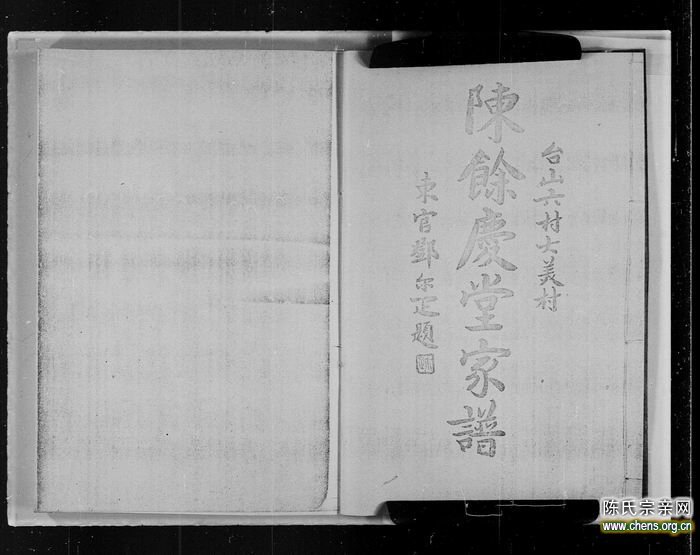 台山六村士美村
陳餘慶堂家譜
東官鄧尔疋題
陈氏宗亲网
www.chens.org.cn